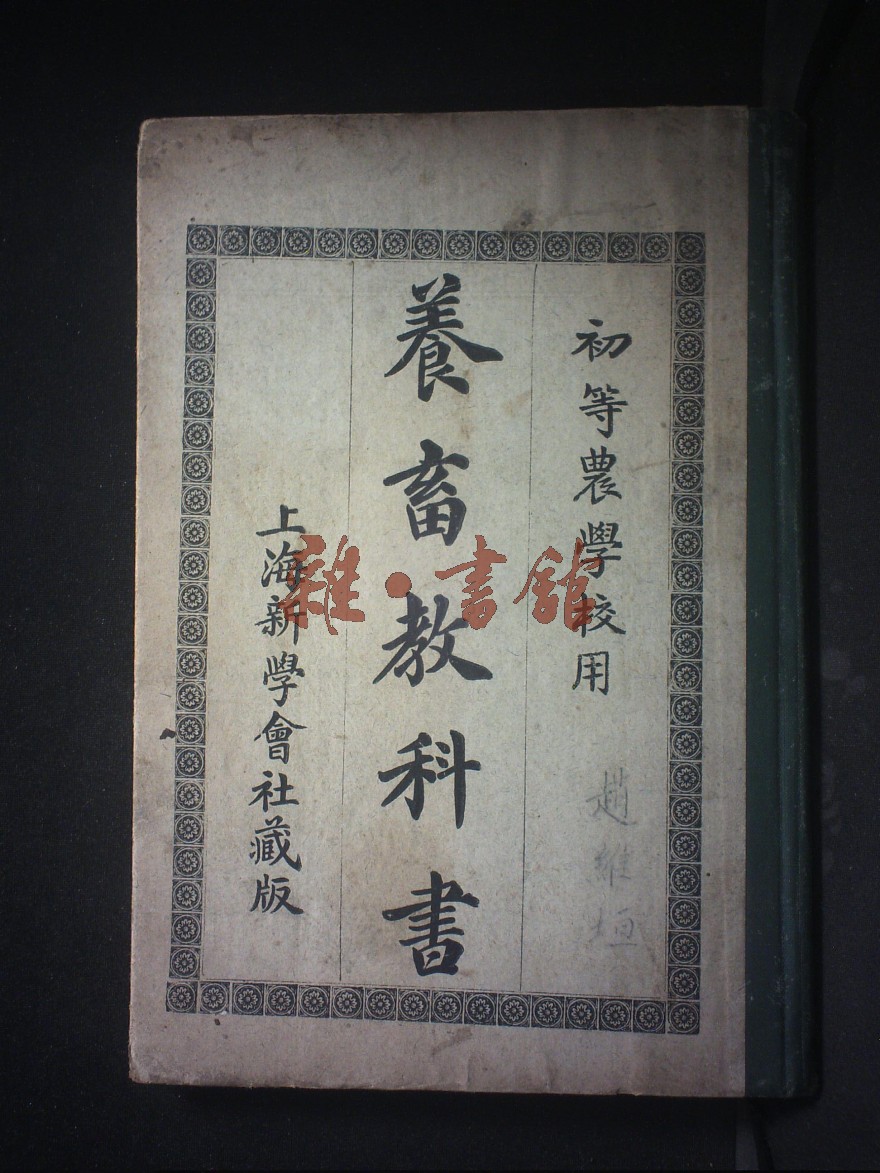 初等農學校用
趙維垣
養畜教科書
上海新學會社藏版
雜·書館